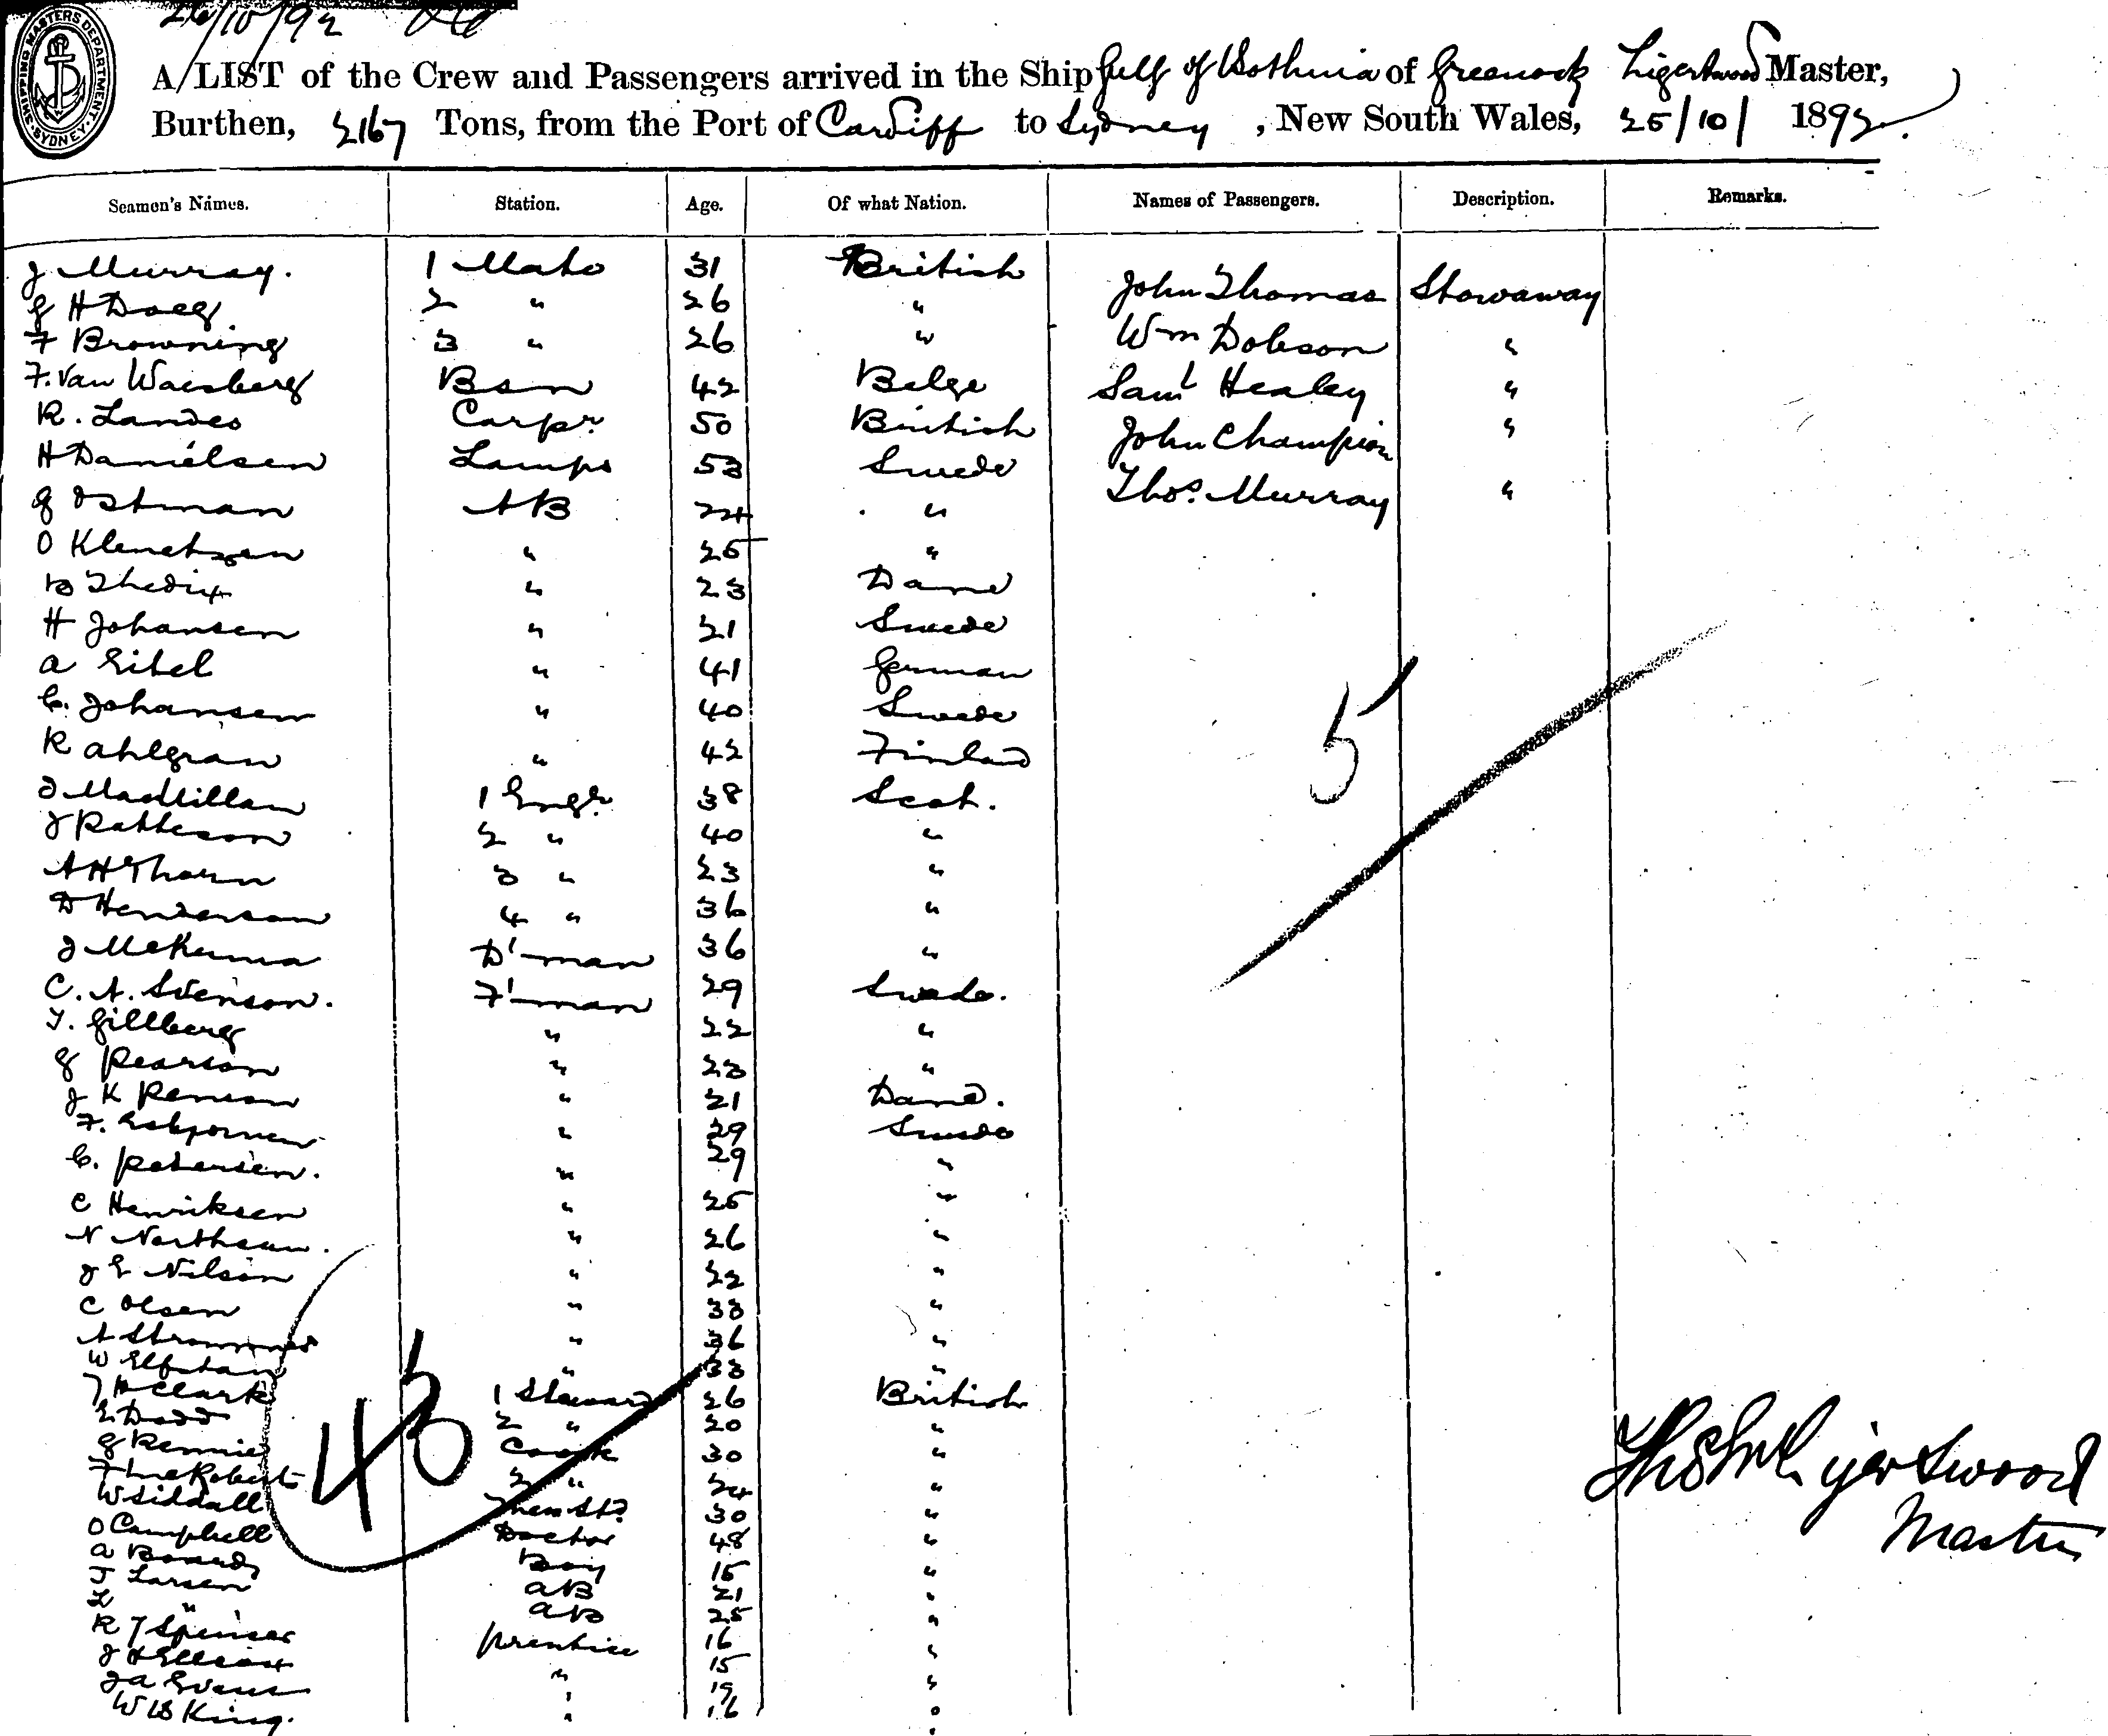 26/10/92
SHIPPING MASTERS DEPARTMENT. SYDNEY.
A LIST of the Crew and Passengers arrived in the Ship Gulf of Bothnia of Greenock Ligertwood Master,
Burthen, 2167 Tons, from the Port of Cardiff to Sydney, New South Wales, 25/10/ 1892.
Seamen's Names. Station. Age. Of what Nation. Names of Passengers. Description. Remarks.
J Murray. 1 Mate 31 British John Thomas Stowaway
G H Doeg 2 " 26 " Wm Dobson "
F Browning 3 " 26 " Saml Healey "
F. Van Waesberg Bsn 42 Belge John Champion "
R. Landes Carpr 50 British Thos. Murray "
H Danielsen Lamps 53 Swede
G Ostman AB 24 "
O Klenetzen " 25 "
B Thedix " 23 Dane
H Johansen " 21 Swede
A Eitel " 41 German
C. Johansen " 40 Swede
R Ahlgran " 42 Finland
J MacMillan 1 Engr. 38 Scot.
J Patteson 2 " 40 "
A H Thorn 3 " 23 "
D Henderson 4 " 36 "
J McKenna D'man 36 "
C. A. Svenson. F'man 29 Swede.
T. Gillberg " 22 "
G Pearson " 23 "
J K Renson " 21 Dane.
F. " 29 Swede
C. Petersen. " 29 "
C Henriksen " 25 "
N Northean. " 26 "
J E Nilson " 22 "
C Olsen " 33 "
A " 36 "
W " 33 "
J H Clark 1 Steward 26 British
E Dodd 2 " 20 "
G Rennie Cook 30 "
F 2 " 24 "
W Siddall 30 "
O Campbell Doctor 48 "
A Boy 15 "
J Larsen AB 21 "
L " AB 25 "
R J Spinser Prentice 16 "
J H " 15 "
J A Evans " 19 "
W B King. " 16 "
5
43
Ligertwood
Master